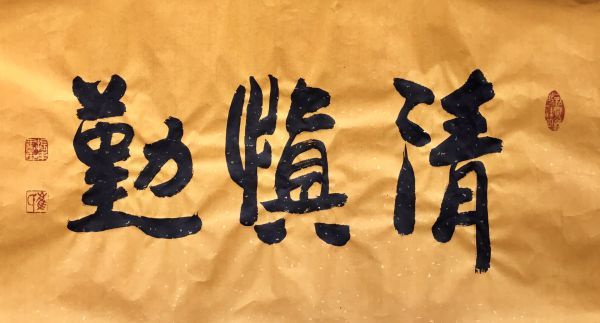 清慎勤